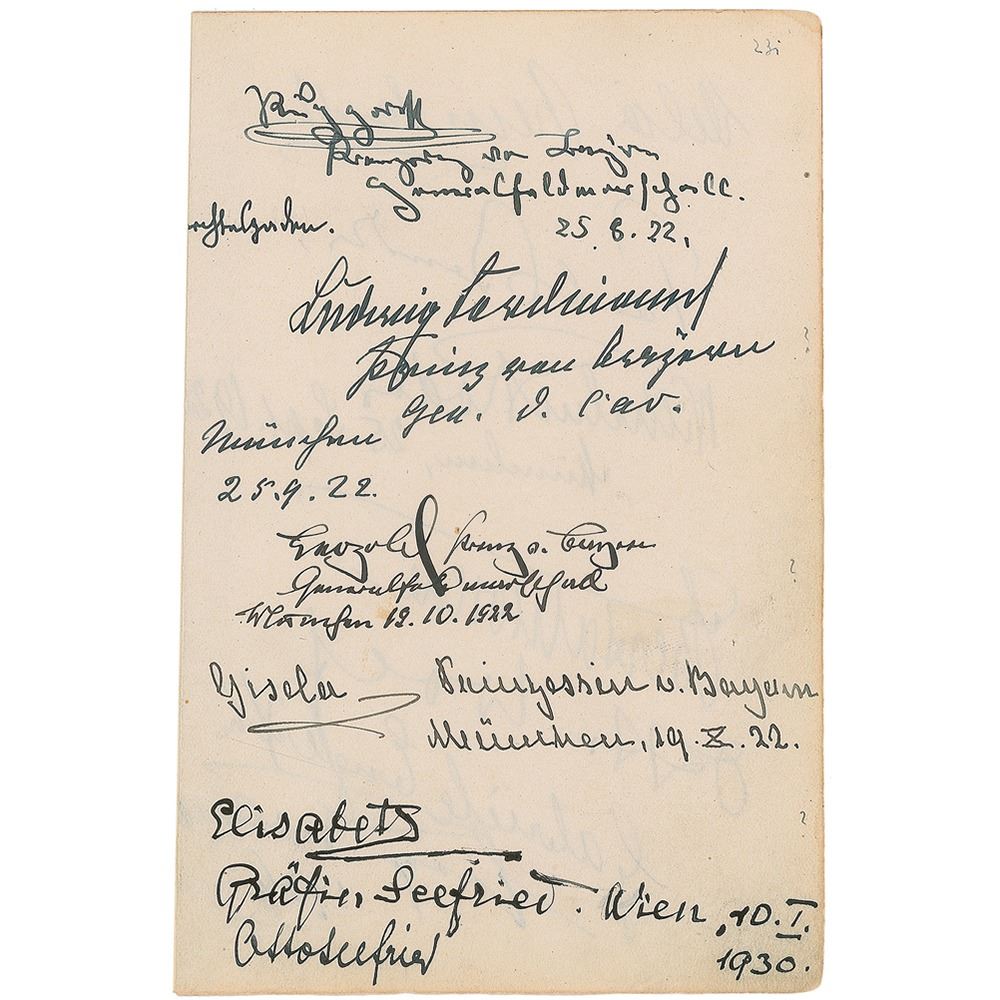 23i
Rupprecht
Kronprinz von Bayern
Generalfeldmarschall.
rchtesgaden.
25. 8. 22.
Ludwig Ferdinand
Prinz von Bayern
Gen. d. Cav.
München
25.9.22.
Leopold Prinz v. Bayern
Generalfeldmarschall
München 19.10.1922
Gisela Prinzessin v. Bayern
München, 19.X.22.
Elisabeth
Gräfin Seefried. Wien, 10.I.
1930.
Otto Seefried